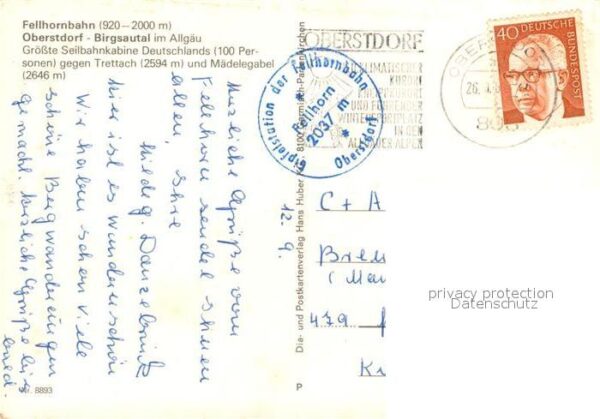 Fellhornbahn (920–2000 m)
Oberstdorf - Birgsautal im Allgäu
Größte Seilbahnkabine Deutschlands (100 Per-
sonen) gegen Trettach (2594 m) und Mädelegabel
(2646 m)
Herzliche Grüße vom
Fellhorn sendet Ihnen
allen, Ihre
Hildeg. Danzebrink
hier ist es wunderschön
Wir haben schon viele
schöne Bergwanderungen
gemacht. Herzliche Grüße bis
bald.
Nr. 8893
Dia- und Postkartenverlag Hans Huber 8100 Garmisch-Partenkirchen
P
12. 9.
Gipfelstation der Fellhornbahn
Fellhorn
2037 m
Oberstdorf
OBERSTDORF
KLIMATISCHER
KURORT
KNEIPPKURORT
UND FÜHRENDER
WINTERSPORTPLATZ
IN DEN
ALLGÄUER ALPEN
OBERSTDORF
40
DEUTSCHE
BUNDESPOST
C + A
479
privacy protection
Datenschutz